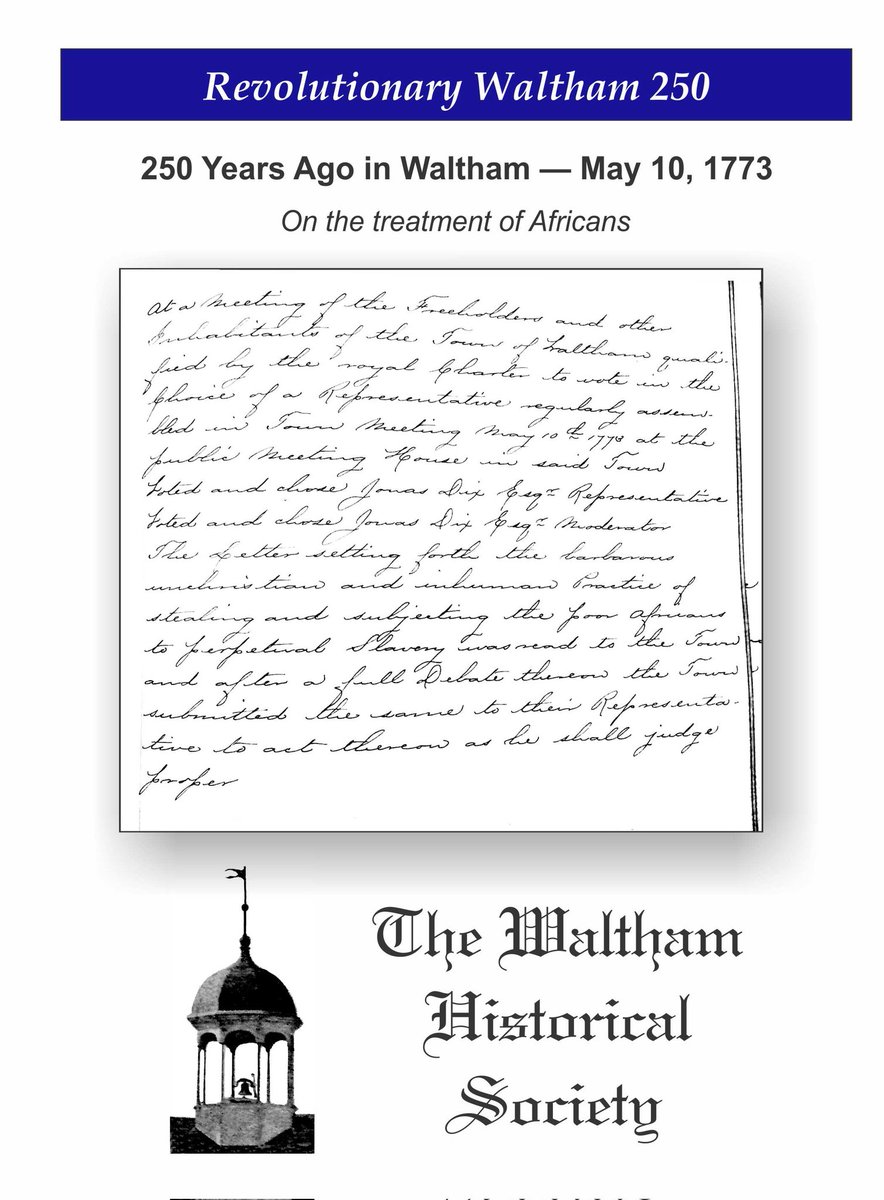 Revolutionary Waltham 250
250 Years Ago in Waltham — May 10, 1773
On the treatment of Africans
At a Meeting of the Freeholders and other
Inhabitants of the Town of Waltham quali-
fied by the royal Charter to vote in the
Choice of a Representative regularly assem-
bled in Town Meeting May 10th 1773 at the
public Meeting House in said Town
Voted and chose Jonas Dix Esqr Representative
Voted and chose Jonas Dix Esqr Moderator
The Letter setting forth the barbarous
unchristian and inhuman Practice of
stealing and subjecting the poor Africans
to perpetual Slavery was read to the Town
and after a full Debate thereon the Town
submitted the same to their Representa-
tive to act thereon as he shall judge
proper
The Waltham
Historical
Society